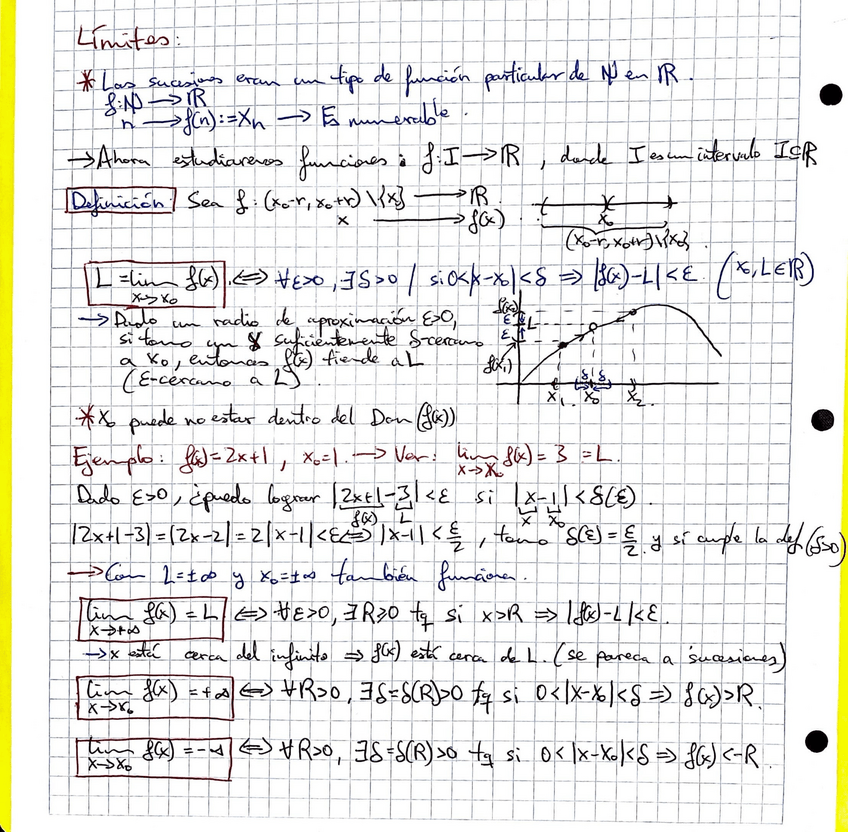 Límites:
* Las sucesiones eran un tipo de función particular de ℕ en ℝ.
f: ℕ → ℝ
n → f(n) := Xn → Es numerable.
→ Ahora estudiaremos funciones: f: I → ℝ, donde I es un intervalo I ⊆ ℝ
Definición Sea f: (x₀-r, x₀+r) \ {x₀} → ℝ
x → f(x)
x₀
(x₀-r, x₀+r) \ {x₀}
L = lim f(x) ⟺ ∀ε>0, ∃δ>0 / si 0<|x-x₀|<δ ⇒ |f(x)-L|<ε. (x₀, L ∈ ℝ)
x→x₀
→ Dado un radio de aproximación ε>0,
si tomo un x suficientemente δ-cercano
a x₀, entonces f(x) tiende a L
(ε-cercano a L).
f(x₂)
ε L
ε
f(x₁)
δ δ
x₁ x₀ x₂
* x₀ puede no estar dentro del Dom(f(x))
Ejemplo: f(x)=2x+1, x₀=1. → Ver: lim f(x) = 3 = L.
x→x₀
Dado ε>0, ¿puedo lograr |2x+1-3|<ε si |x-1|<δ(ε).
f(x) L x x₀
|2x+1-3|=|2x-2|=2|x-1|<ε ⟺ |x-1|<ε/2, tomo δ(ε)=ε/2 y sí cumple la def (δ>0)
→ Con L=±∞ y x₀=±∞ también funciona.
lim f(x) = L ⟺ ∀ε>0, ∃R≥0 tq si x>R ⇒ |f(x)-L|<ε.
x→+∞
→ x está cerca del infinito ⇒ f(x) está cerca de L. (se pareca a sucesiones)
lim f(x) = +∞ ⟺ ∀R>0, ∃δ=δ(R)>0 tq si 0<|x-x₀|<δ ⇒ f(x)>R.
x→x₀
lim f(x) = -∞ ⟺ ∀R>0, ∃δ=δ(R)>0 tq si 0<|x-x₀|<δ ⇒ f(x)<-R.
x→x₀